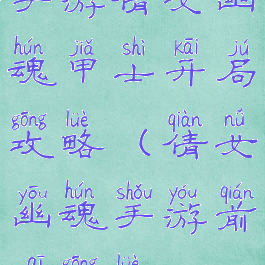 手游倩女幽
hún jiǎ shì kāi jú
魂甲士开局
gōng lüè qiàn nǚ
攻略（倩女
yōu hún shǒu yóu qián
幽魂手游前
qī gōng lüè